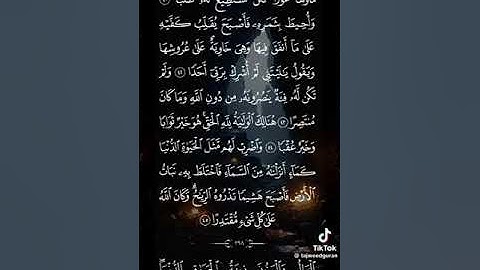 مَآؤُهَا غَوْرًا فَلَن تَسْتَطِيعَ لَهُۥ طَلَبًا ٤١
وَأُحِيطَ بِثَمَرِهِۦ فَأَصْبَحَ يُقَلِّبُ كَفَّيْهِ
عَلَىٰ مَآ أَنفَقَ فِيهَا وَهِىَ خَاوِيَةٌ عَلَىٰ عُرُوشِهَا
وَيَقُولُ يَٰلَيْتَنِى لَمْ أُشْرِكْ بِرَبِّىٓ أَحَدًا ٤٢ وَلَمْ
تَكُن لَّهُۥ فِئَةٌ يَنصُرُونَهُۥ مِن دُونِ ٱللَّهِ وَمَا كَانَ
مُنتَصِرًا ٤٣ هُنَالِكَ ٱلْوَلَٰيَةُ لِلَّهِ ٱلْحَقِّ هُوَ خَيْرٌ ثَوَابًا
وَخَيْرٌ عُقْبًا ٤٤ وَٱضْرِبْ لَهُم مَّثَلَ ٱلْحَيَوٰةِ ٱلدُّنْيَا
كَمَآءٍ أَنزَلْنَٰهُ مِنَ ٱلسَّمَآءِ فَٱخْتَلَطَ بِهِۦ نَبَاتُ
ٱلْأَرْضِ فَأَصْبَحَ هَشِيمًا تَذْرُوهُ ٱلرِّيَٰحُ وَكَانَ ٱللَّهُ
عَلَىٰ كُلِّ شَىْءٍ مُّقْتَدِرًا ٤٥
٢٩٨
TikTok
@tajweedquran